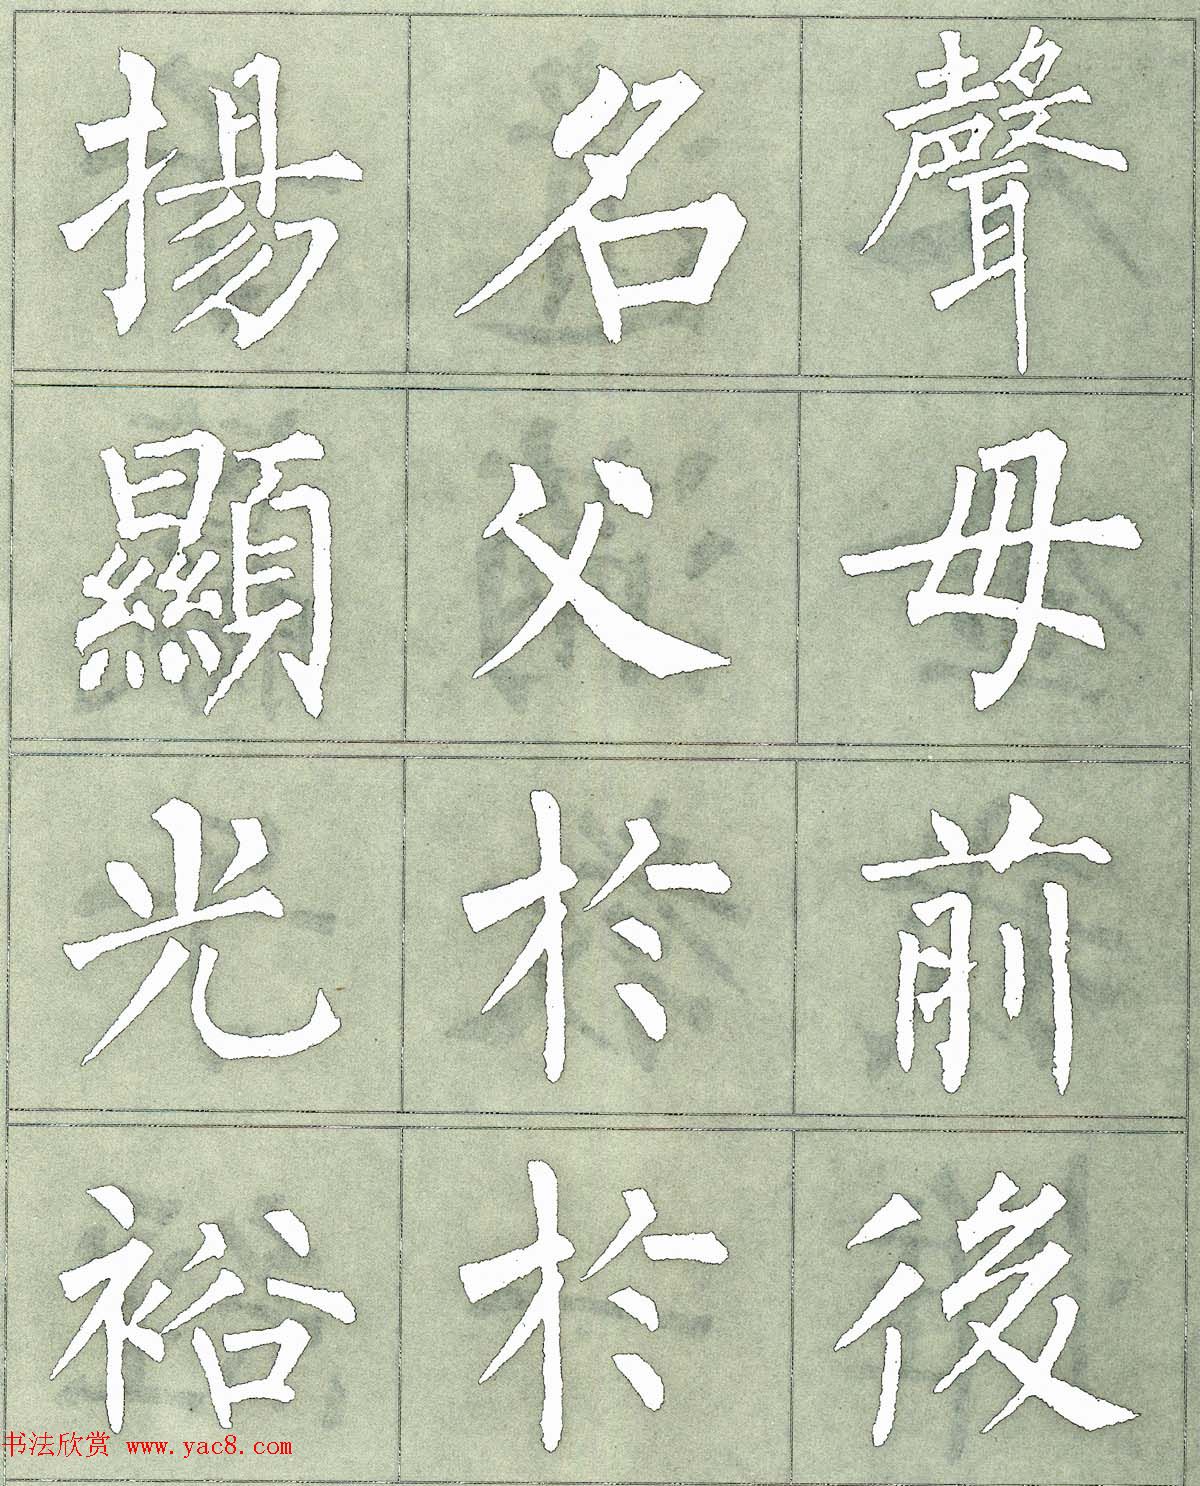 揚名聲
顯父母
光於前
裕於後
书法欣赏 www.yac8.com